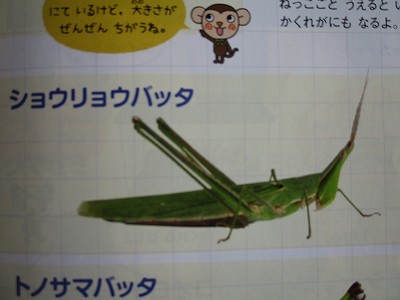 にて いるけど、大きさが
ぜんぜん ちがうね。
ねっこごと うえると い
かくれがにも なるよ。
ショウリョウバッタ
トノサマバッタ